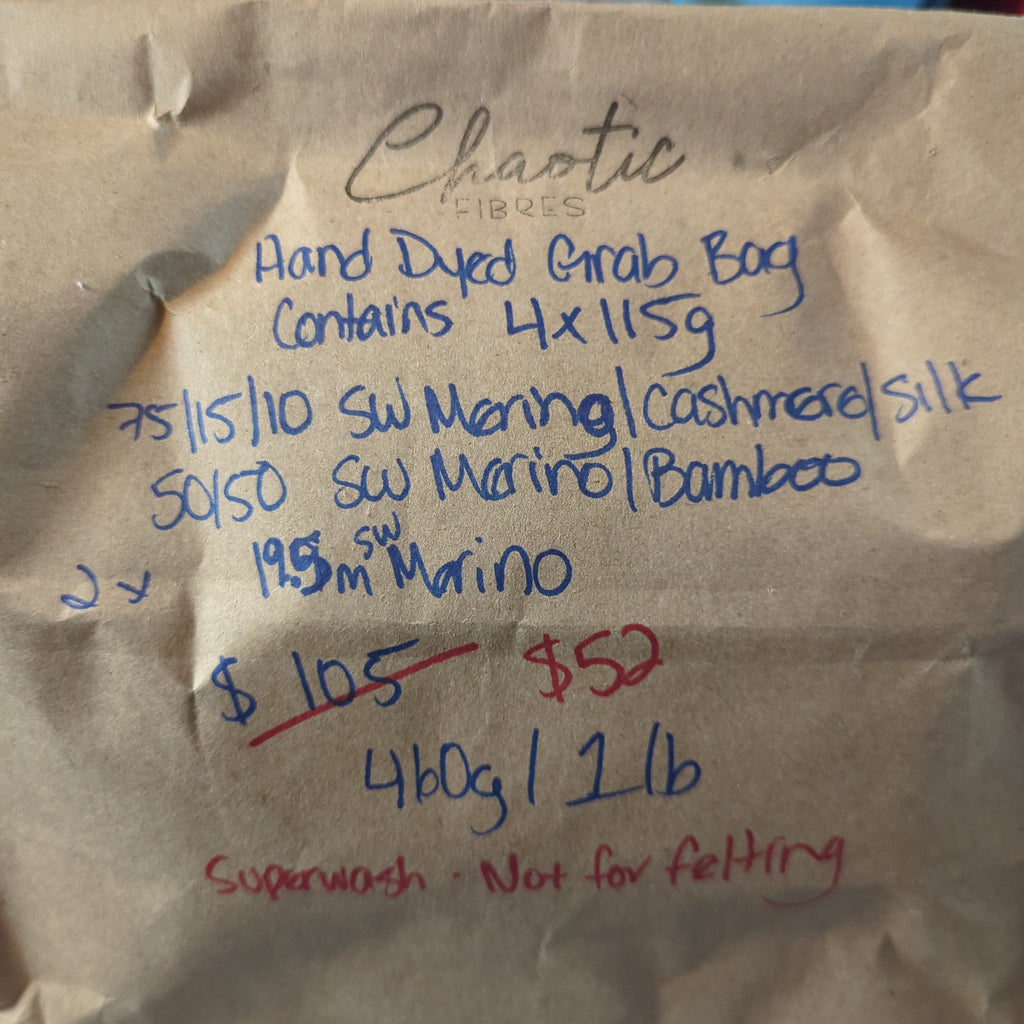 Chaotic
FIBRES
Hand Dyed Grab Bag
Contains 4x115g
75/15/10 SW Merino/Cashmere/Silk
50/50 SW Merino/Bamboo
2x 19.5m SW Merino
$105 $52
460g/1lb
Superwash · Not for felting